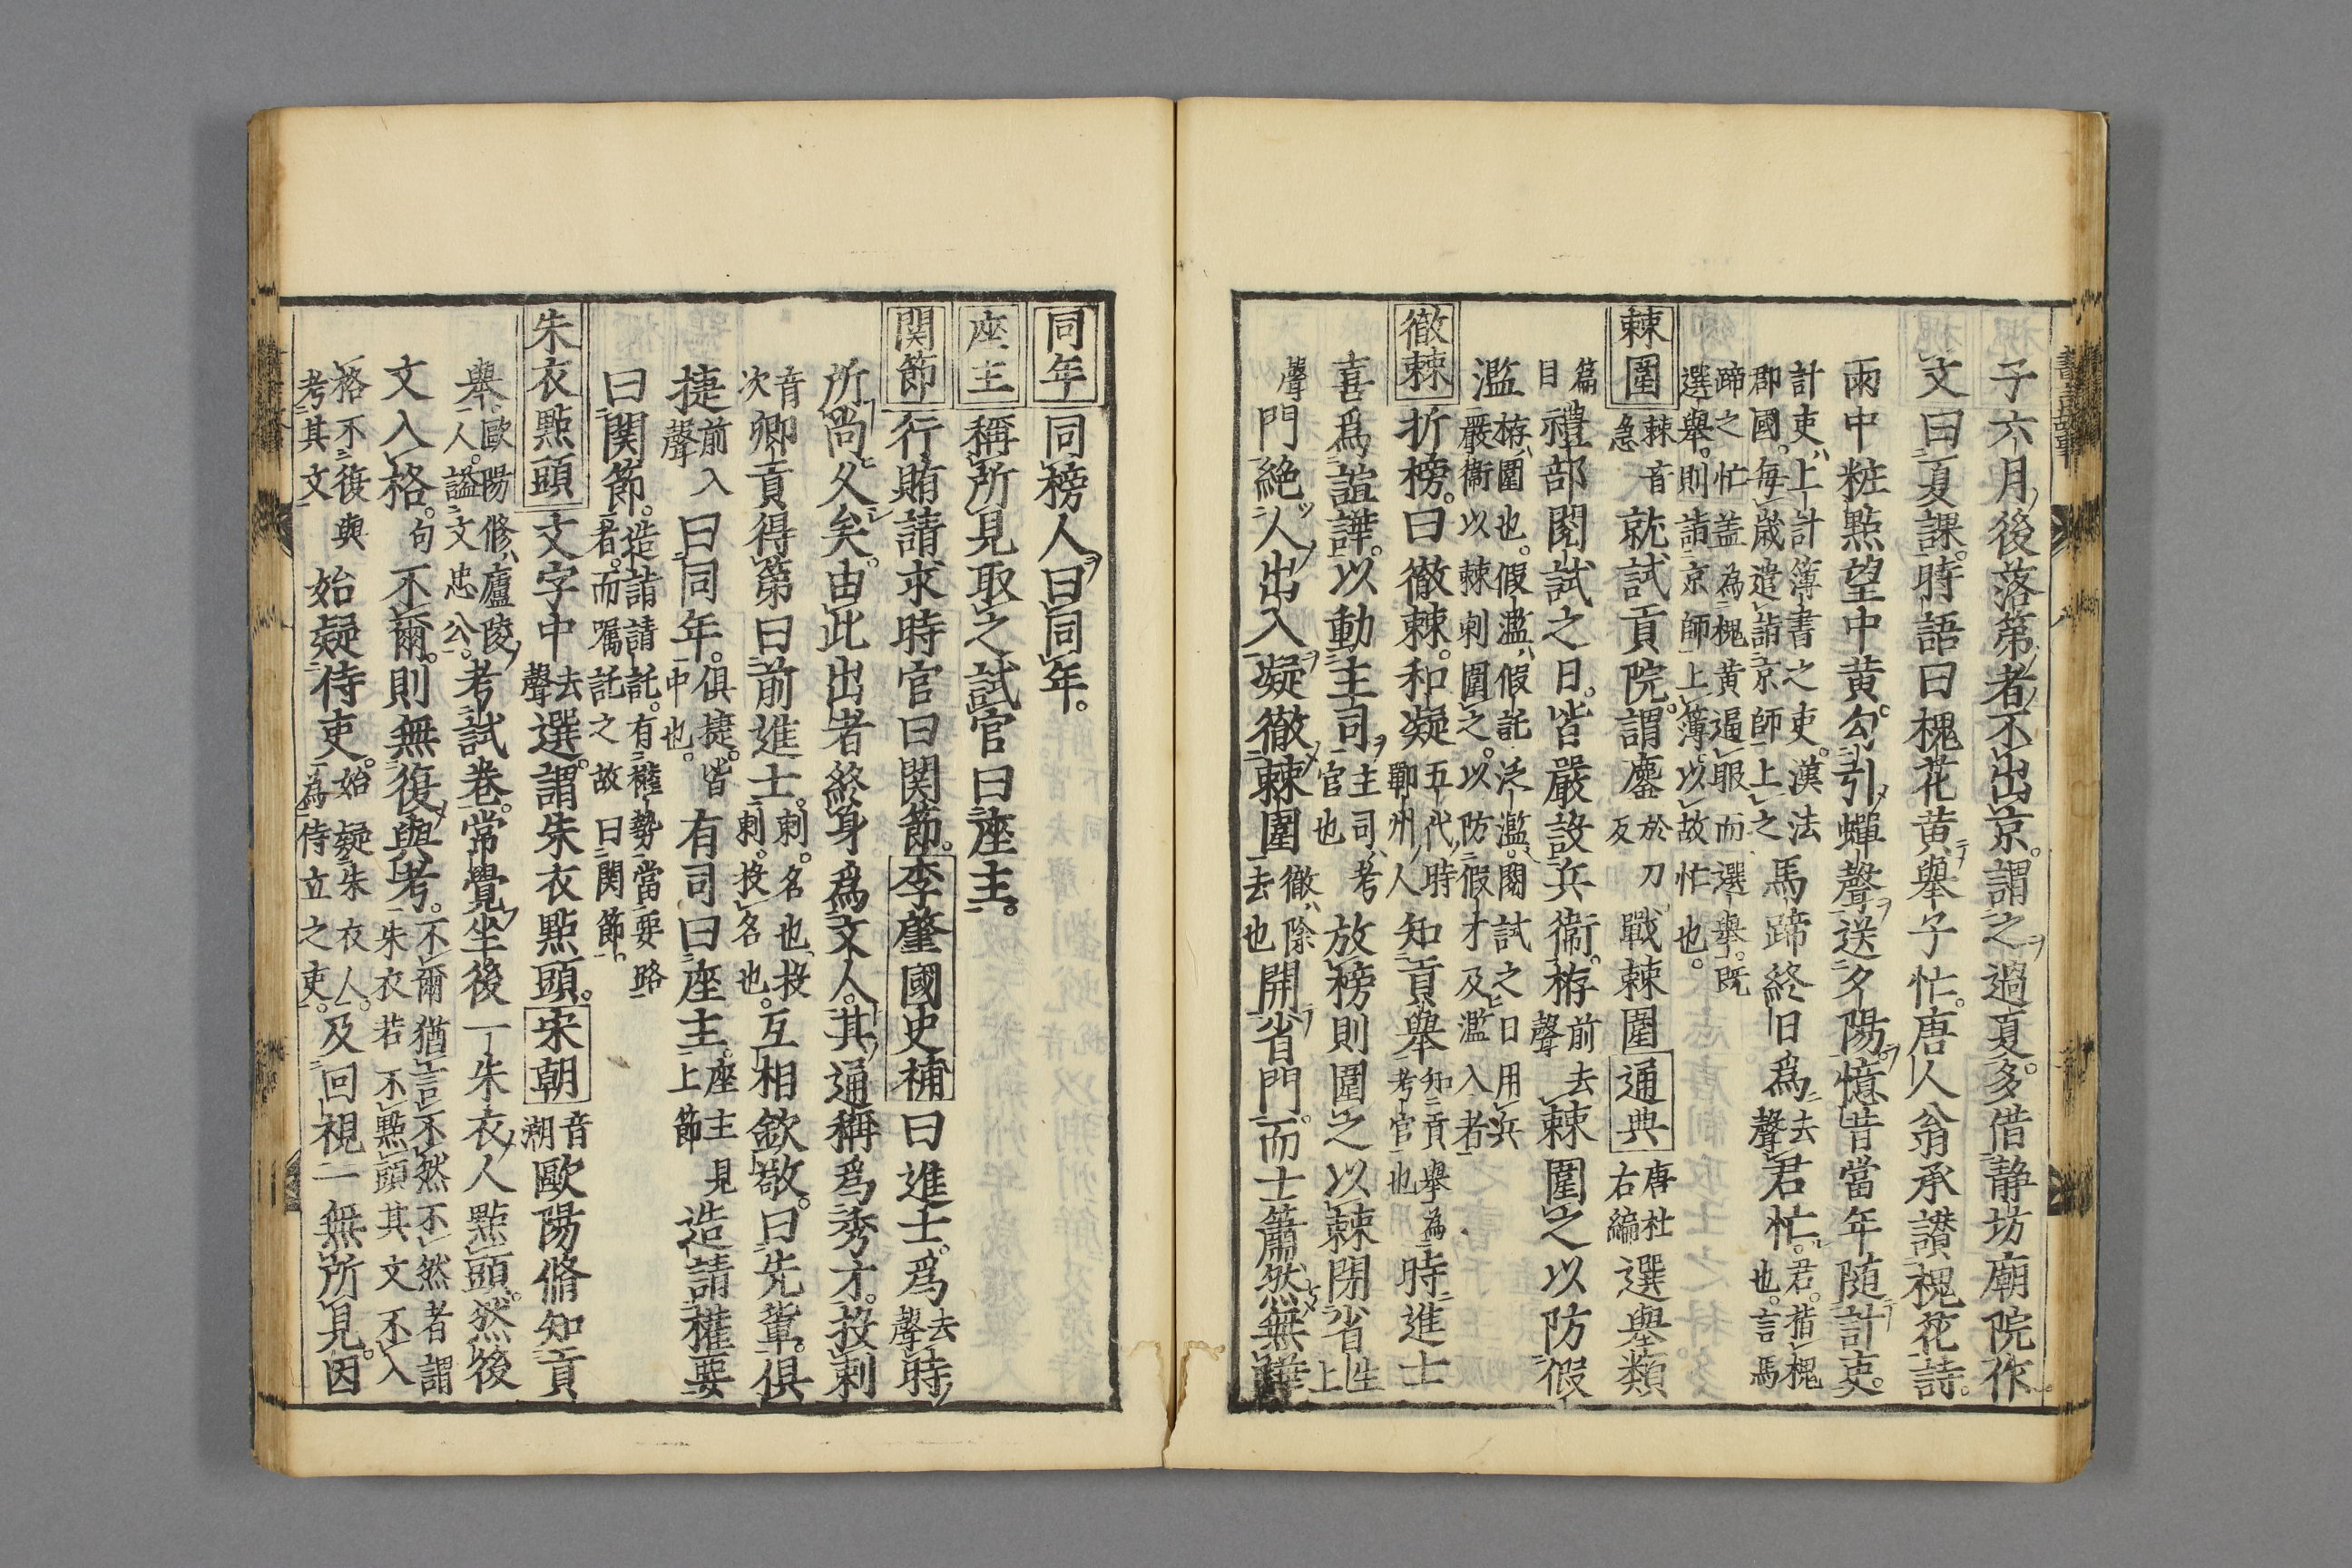 子六月後落第者不出京。謂之過夏。多借静坊廟院作
文曰夏課。時語曰槐花黄舉子忙。唐人翁承讃槐花詩。
雨中粧點望中黄。勾引蟬聲送夕陽。憶昔當年随計吏。
計吏、上計簿書之吏。漢法
郡國。毎歳遣詣京師上之
馬蹄終日爲
去
聲
君忙。
君。指槐
也。言馬
蹄之忙盖為槐黄逼眼而選舉。既
選舉。則詣京師上簿。以故忙也。
棘圍
棘音
急
就試貢院。謂鏖
於刀
反
戰棘圍
通典
唐杜
右編
選舉類
篇
目
禮部閲試之日。皆嚴設兵衞。栫
前去
聲
棘圍之以防假
濫
栫、圍也。假濫、假託泛濫。閲試之日用兵
嚴衞以棘刺圍之。以防假才及濫入者
徹棘
折榜。曰徹棘。和凝
五代時
鄆州人
知貢舉
知貢舉為
考官也
時進士
喜爲諠譁。以動主司
主司、考
官也
放榜則圍之以棘閉省
生
上
聲
門絶人出入凝徹棘圍
徹、除
去也
開省門。而士簫然無譁
同年
同榜人曰同年。
座主
稱所見取之試官曰座主。
関節
行賄請求時官曰関節。
李肇國史補
曰進士。爲
去
聲
時
所尚久矣。由此出者終身爲文人。其通稱爲秀才。投刺
音
次
卿貢得第曰前進士。
刺。名也、投
刺。投名也。
互相欽敬。曰先輩。俱
捷
前入
聲
曰同年。
俱捷。皆
中也。
有司曰座主。
座主見
上節
造請權要
曰関節。
造請請託。有權勢當要路
者。而嘱託之故曰関節、
朱衣點頭
文字中
去
聲
選。謂朱衣點頭。
宋朝
音
潮
歐陽脩知貢
舉
歐陽修、廬陵
人。謚文忠公。
考試巻。常覺坐後一朱衣人點頭。然後
文入格。
句
不爾。則無復與考。
不爾猶言不然不然者謂
朱衣若不點頭其文不入
格不復與
考其文
始疑侍吏。
始疑朱衣人。
為侍立之吏。
及回視一無所見。因